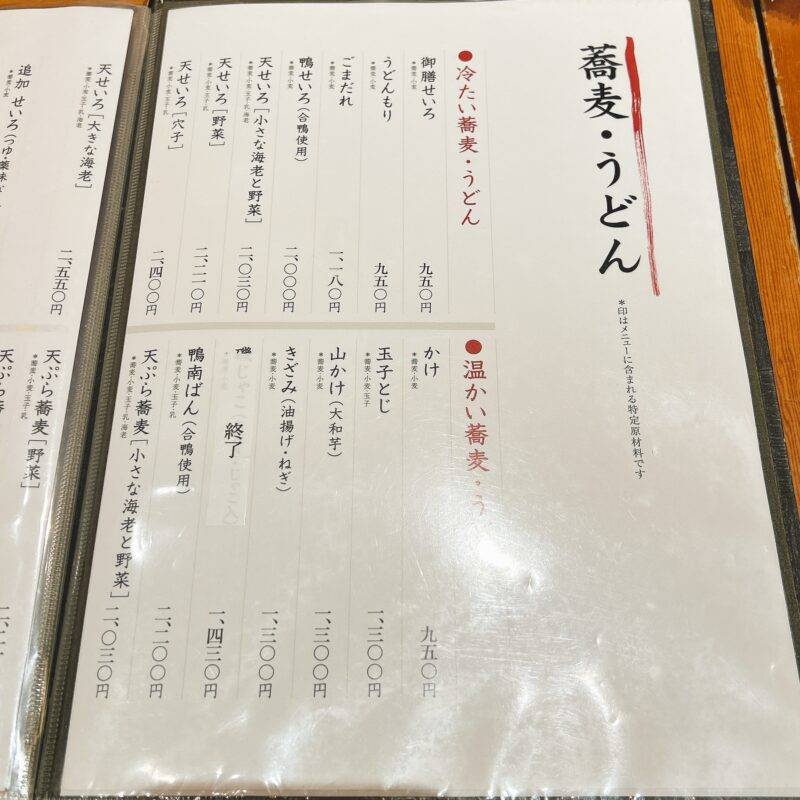 蕎麦・うどん
*印はメニューに含まれる特定原材料です
●冷たい蕎麦・うどん
御膳せいろ 九五〇円
*蕎麦・小麦
うどんもり 九五〇円
*小麦
ごまだれ 一、一八〇円
*蕎麦・小麦
鴨せいろ(合鴨使用) 二、〇〇〇円
*蕎麦・小麦
天せいろ[小さな海老と野菜] 二、〇三〇円
*蕎麦・小麦・玉子・乳・海老
天せいろ[野菜] 二、二一〇円
*蕎麦・小麦・玉子・乳
天せいろ[穴子] 二、四〇〇円
*蕎麦・小麦・玉子・乳
天せいろ[大きな海老] 二、五五〇円
*蕎麦・小麦・玉子・乳・海老
追加 せいろ(つゆ・薬味
*蕎麦・小麦
●温かい蕎麦・う
かけ 九五〇円
*蕎麦・小麦
玉子とじ 一、三〇〇円
*蕎麦・小麦・玉子
山かけ(大和芋) 一、三〇〇円
*蕎麦・小麦
きざみ(油揚げ・ねぎ) 一、三〇〇円
*蕎麦・小麦
じゃこ 終了 一、四三〇円
鴨南ばん(合鴨使用) 二、二〇〇円
*蕎麦・小麦・玉子・乳
天ぷら蕎麦[小さな海老と野菜] 二、〇三〇円
*蕎麦・小麦・玉子・乳・海老
天ぷら蕎麦[野菜] 二、二一
*蕎麦・小麦・玉子・乳
天ぷら